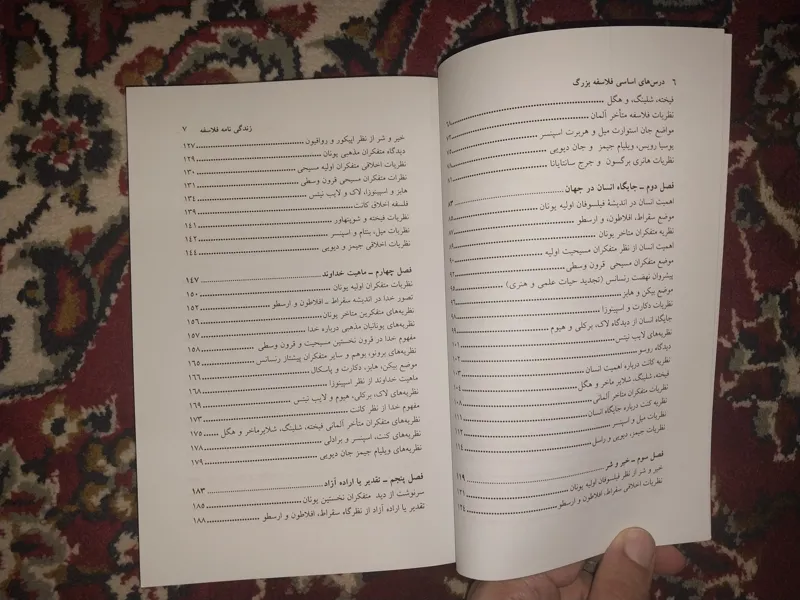 ۶ درس‌های اساسی فلاسفه بزرگ
فیخته، شلینگ، و هگل ۶۸
نظریات فلاسفه متأخر آلمان
مواضع جان استوارت میل و هربرت اسپنسر ۷۲
یوسیا رویس، ویلیام جیمز و جان دیویی ۷۵
نظریات هانری برگسون و جرج سانتایانا
فصل دوم ـ جایگاه انسان در جهان ۸۳
اهمیت انسان در اندیشهٔ فیلسوفان اولیه یونان ۸۵
موضع سقراط، افلاطون، و ارسطو ۸۷
نظریه متفکران متأخر یونان ۸۹
اهمیت انسان از نظر متفکران مسیحیت اولیه ۹۰
موضع متفکران مسیحی قرون وسطی ۹۲
پیشروان نهضت رنسانس (تجدید حیات علمی و هنری) ۹۵
موضع بیکن و هابز ۹۶
نظریات دکارت و اسپینوزا ۹۸
جایگاه انسان از دیدگاه لاک، برکلی و هیوم ۹۹
نظریه‌های لایب نیتس ۱۰۱
دیدگاه روسو ۱۰۲
نظریه کانت درباره اهمیت انسان ۱۰۳
فیخته، شلینگ، شلایر ماخر و هگل ۱۰۴
نظریات متفکران متأخر آلمانی ۱۰۸
نظریه کنت درباره جایگاه انسان ۱۱۱
نظریات میل و اسپنسر ۱۱۲
نظریات جیمز، دیویی و راسل ۱۱۴
فصل سوم ـ خیر و شر ۱۱۹
خیر و شر از نظر فیلسوفان اولیه یونان ۱۲۱
نظریات اخلاقی سقراط، افلاطون و ارسطو ۱۲۴
زندگی نامه فلاسفه ۷
خیر و شر از نظر اپیکور و رواقیون ۱۲۷
دیدگاه متفکران مذهبی یونان ۱۲۹
نظریات اخلاقی متفکران اولیه مسیحی ۱۳۰
نظرات متفکران مسیحی قرون وسطی ۱۳۱
هابز و اسپینوزا، لاک و لایب نیتس ۱۳۴
فلسفه اخلاق کانت ۱۳۹
نظریات فیخته و شوپنهاور ۱۴۱
نظریات میل، بنتام و اسپنسر ۱۴۲
نظریات اخلاقی جیمز و دیویی ۱۴۴
فصل چهارم ـ ماهیت خداوند ۱۴۷
نظریات متفکران اولیه یونان ۱۵۰
تصور خدا در اندیشه سقراط ـ افلاطون و ارسطو ۱۵۲
نظریه‌های متفکرین متاخر یونان ۱۵۶
نظریه‌های یونانیان مذهبی درباره خدا ۱۵۷
مفهوم خدا در قرون نخستین مسیحیت و قرون وسطی ۱۵۸
نظریه‌های برونو، بوهم و سایر متفکران پیشتاز رنسانس ۱۶۵
موضع بیکن، هابز، دکارت و پاسکال ۱۶۶
ماهیت خداوند از نظر اسپینوزا ۱۶۸
نظریه‌های لاک، برکلی، هیوم و لایب نیتس ۱۶۹
مفهوم خدا از نظر کانت ۱۷۳
نظریه‌های متفکران متأخر آلمانی فیخته، شلینگ، شلایرماخر و هگل ۱۷۵
نظریه‌های کنت، اسپنسر و برادلی ۱۷۸
نظریه‌های ویلیام جیمز جان دیویی ۱۷۹
فصل پنجم ـ تقدیر یا اراده آزاد ۱۸۳
سرنوشت از دید متفکران نخستین یونان ۱۸۵
تقدیر یا اراده آزاد از نظرگاه سقراط، افلاطون و ارسطو ۱۸۸